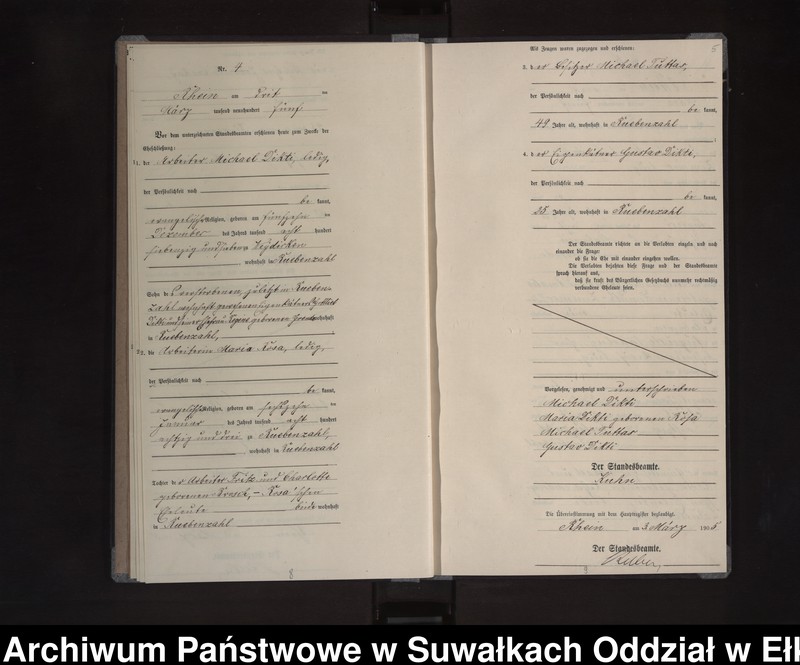 Nr. 4
Rhein am drit ten
März tausend neunhundert fünf
Vor dem unterzeichneten Standesbeamten erschienen heute zum Zwecke der
Eheschließung:
1. der Arbeiter Michael Dikti, ledig,
der Persönlichkeit nach
be kannt,
evangelischer Religion, geboren am fünfzehn ten
Dezember des Jahres tausend acht hundert
siebenzig und sieben zu
wohnhaft in Kuebenzahl
Sohn de
zahl wohnhaft gewesenen Eigenkätners
geborenen wohnhaft
in Kuebenzahl,
2. die Arbeiterin Maria Rosa, ledig,
der Persönlichkeit nach
be kannt,
evangelischer Religion, geboren am sechzehn ten
Januar des Jahres tausend acht hundert
achtzig und drei zu Kuebenzahl,
wohnhaft in Kuebenzahl
Tochter de r Arbeiter Fritz und Charlotte
geborenen Rosa'schen
Eheleute beide wohnhaft
in Kuebenzahl
8
5
Als Zeugen waren zugezogen und erschienen:
3. der Besitzer Michael Puttar,
der Persönlichkeit nach
be kannt,
49 Jahre alt, wohnhaft in Kuebenzahl
4. der Eigenkätner Gustav Dikti,
der Persönlichkeit nach
be kannt,
25 Jahre alt, wohnhaft in Kuebenzahl
Der Standesbeamte richtete an die Verlobten einzeln und nach
einander die Frage:
ob sie die Ehe mit einander eingehen wollen.
Die Verlobten bejahten diese Frage und der Standesbeamte
sprach hierauf aus,
daß sie kraft des Bürgerlichen Gesetzbuchs nunmehr rechtmäßig
verbundene Eheleute seien.
Vorgelesen, genehmigt und unterschrieben
Michael Dikti
Maria Dikti geborenen Rosa
Michael Puttar
Gustav Dikti
Der Standesbeamte.
Kuhn
Die Übereinstimmung mit dem Hauptregister beglaubigt.
Rhein am 3 März 1905
Der Standesbeamte.
9
Archiwum Państwowe w Suwałkach Oddział w Ełk